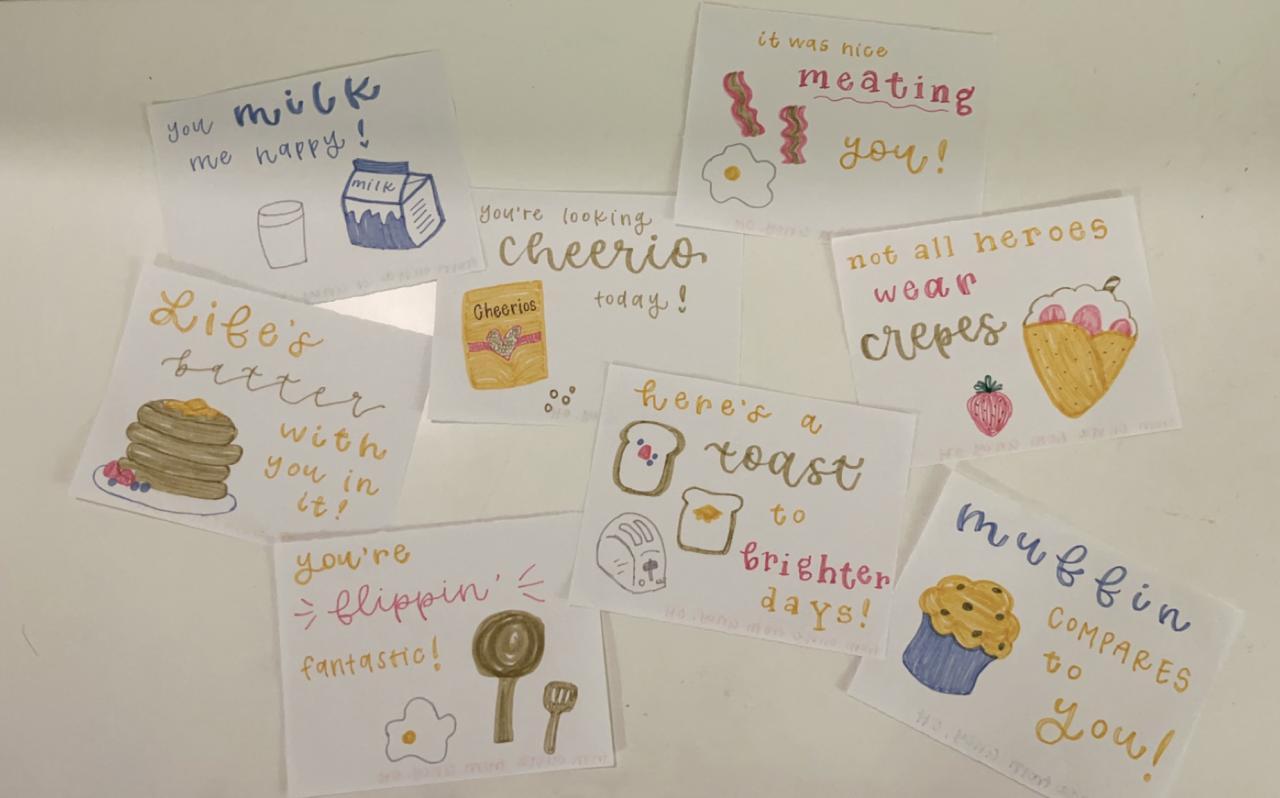 you milk
me happy!
milk
it was nice
meating
you!
you're looking
cheerio
today!
Cheerios
not all heroes
wear
crepes
Life's
batter
with
you in
it!
here's a
toast
to
brighter
days!
you're
flippin'
fantastic!
muffin
COMPARES
to
you!